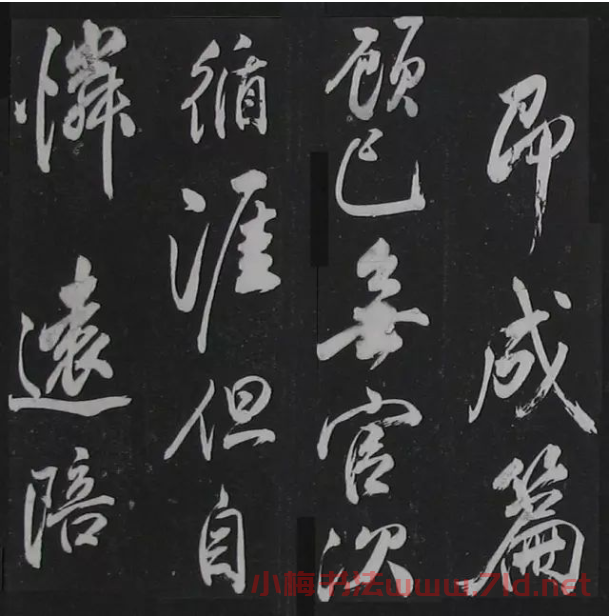 即成篇
顧己無官次
循涯但自
憐遠陪
小梅书法www.7ld.net